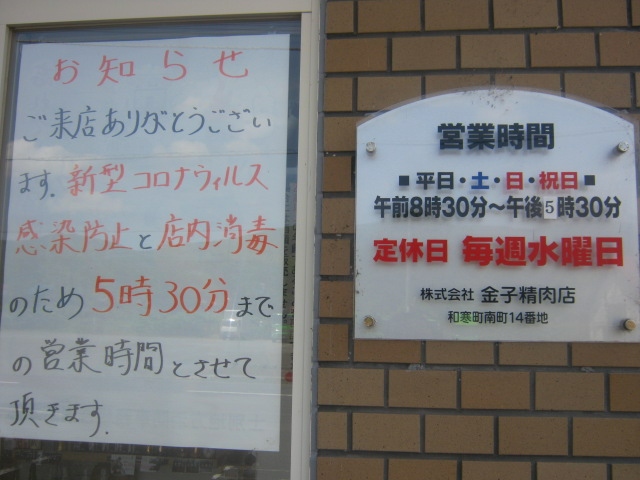 お知らせ
ご来店ありがとうござい
ます.新型コロナウィルス
感染防止と店内消毒
のため5時30分まで
の営業時間とさせて
頂きます.
営業時間
■平日・土・日・祝日■
午前8時30分～午後5時30分
定休日 毎週水曜日
株式会社 金子精肉店
和寒町南町14番地